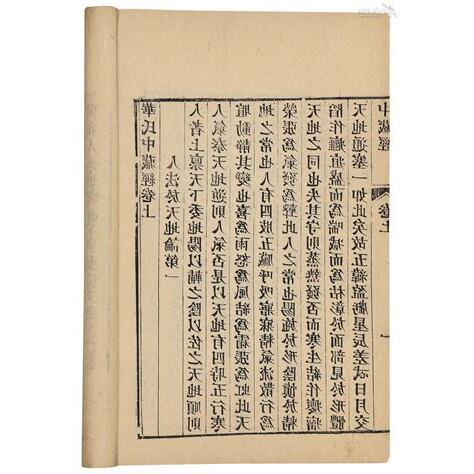 華氏中藏經卷上
人法於天地論第一
人者上稟天下委地陽以輔之陰以佐之天地順則
人氣泰天地逆則人氣否是以天地有四時五行寒
暄動靜其變也喜為雨怒為風結為霜張為虹此天
地之常也人有四肢五臟呼吸寤寐精氣流散行為
榮張為氣發為聲此人之常也陽施於形陰慎於精
天地之同也失其守則蒸熱發否而寒生結作癭瘤
陷作癰疽盛而為喘減而為枯彰於面部見於形體
天地通塞一如此矣故五緯盈虧星辰差忒日月交
中藏經 卷上 一